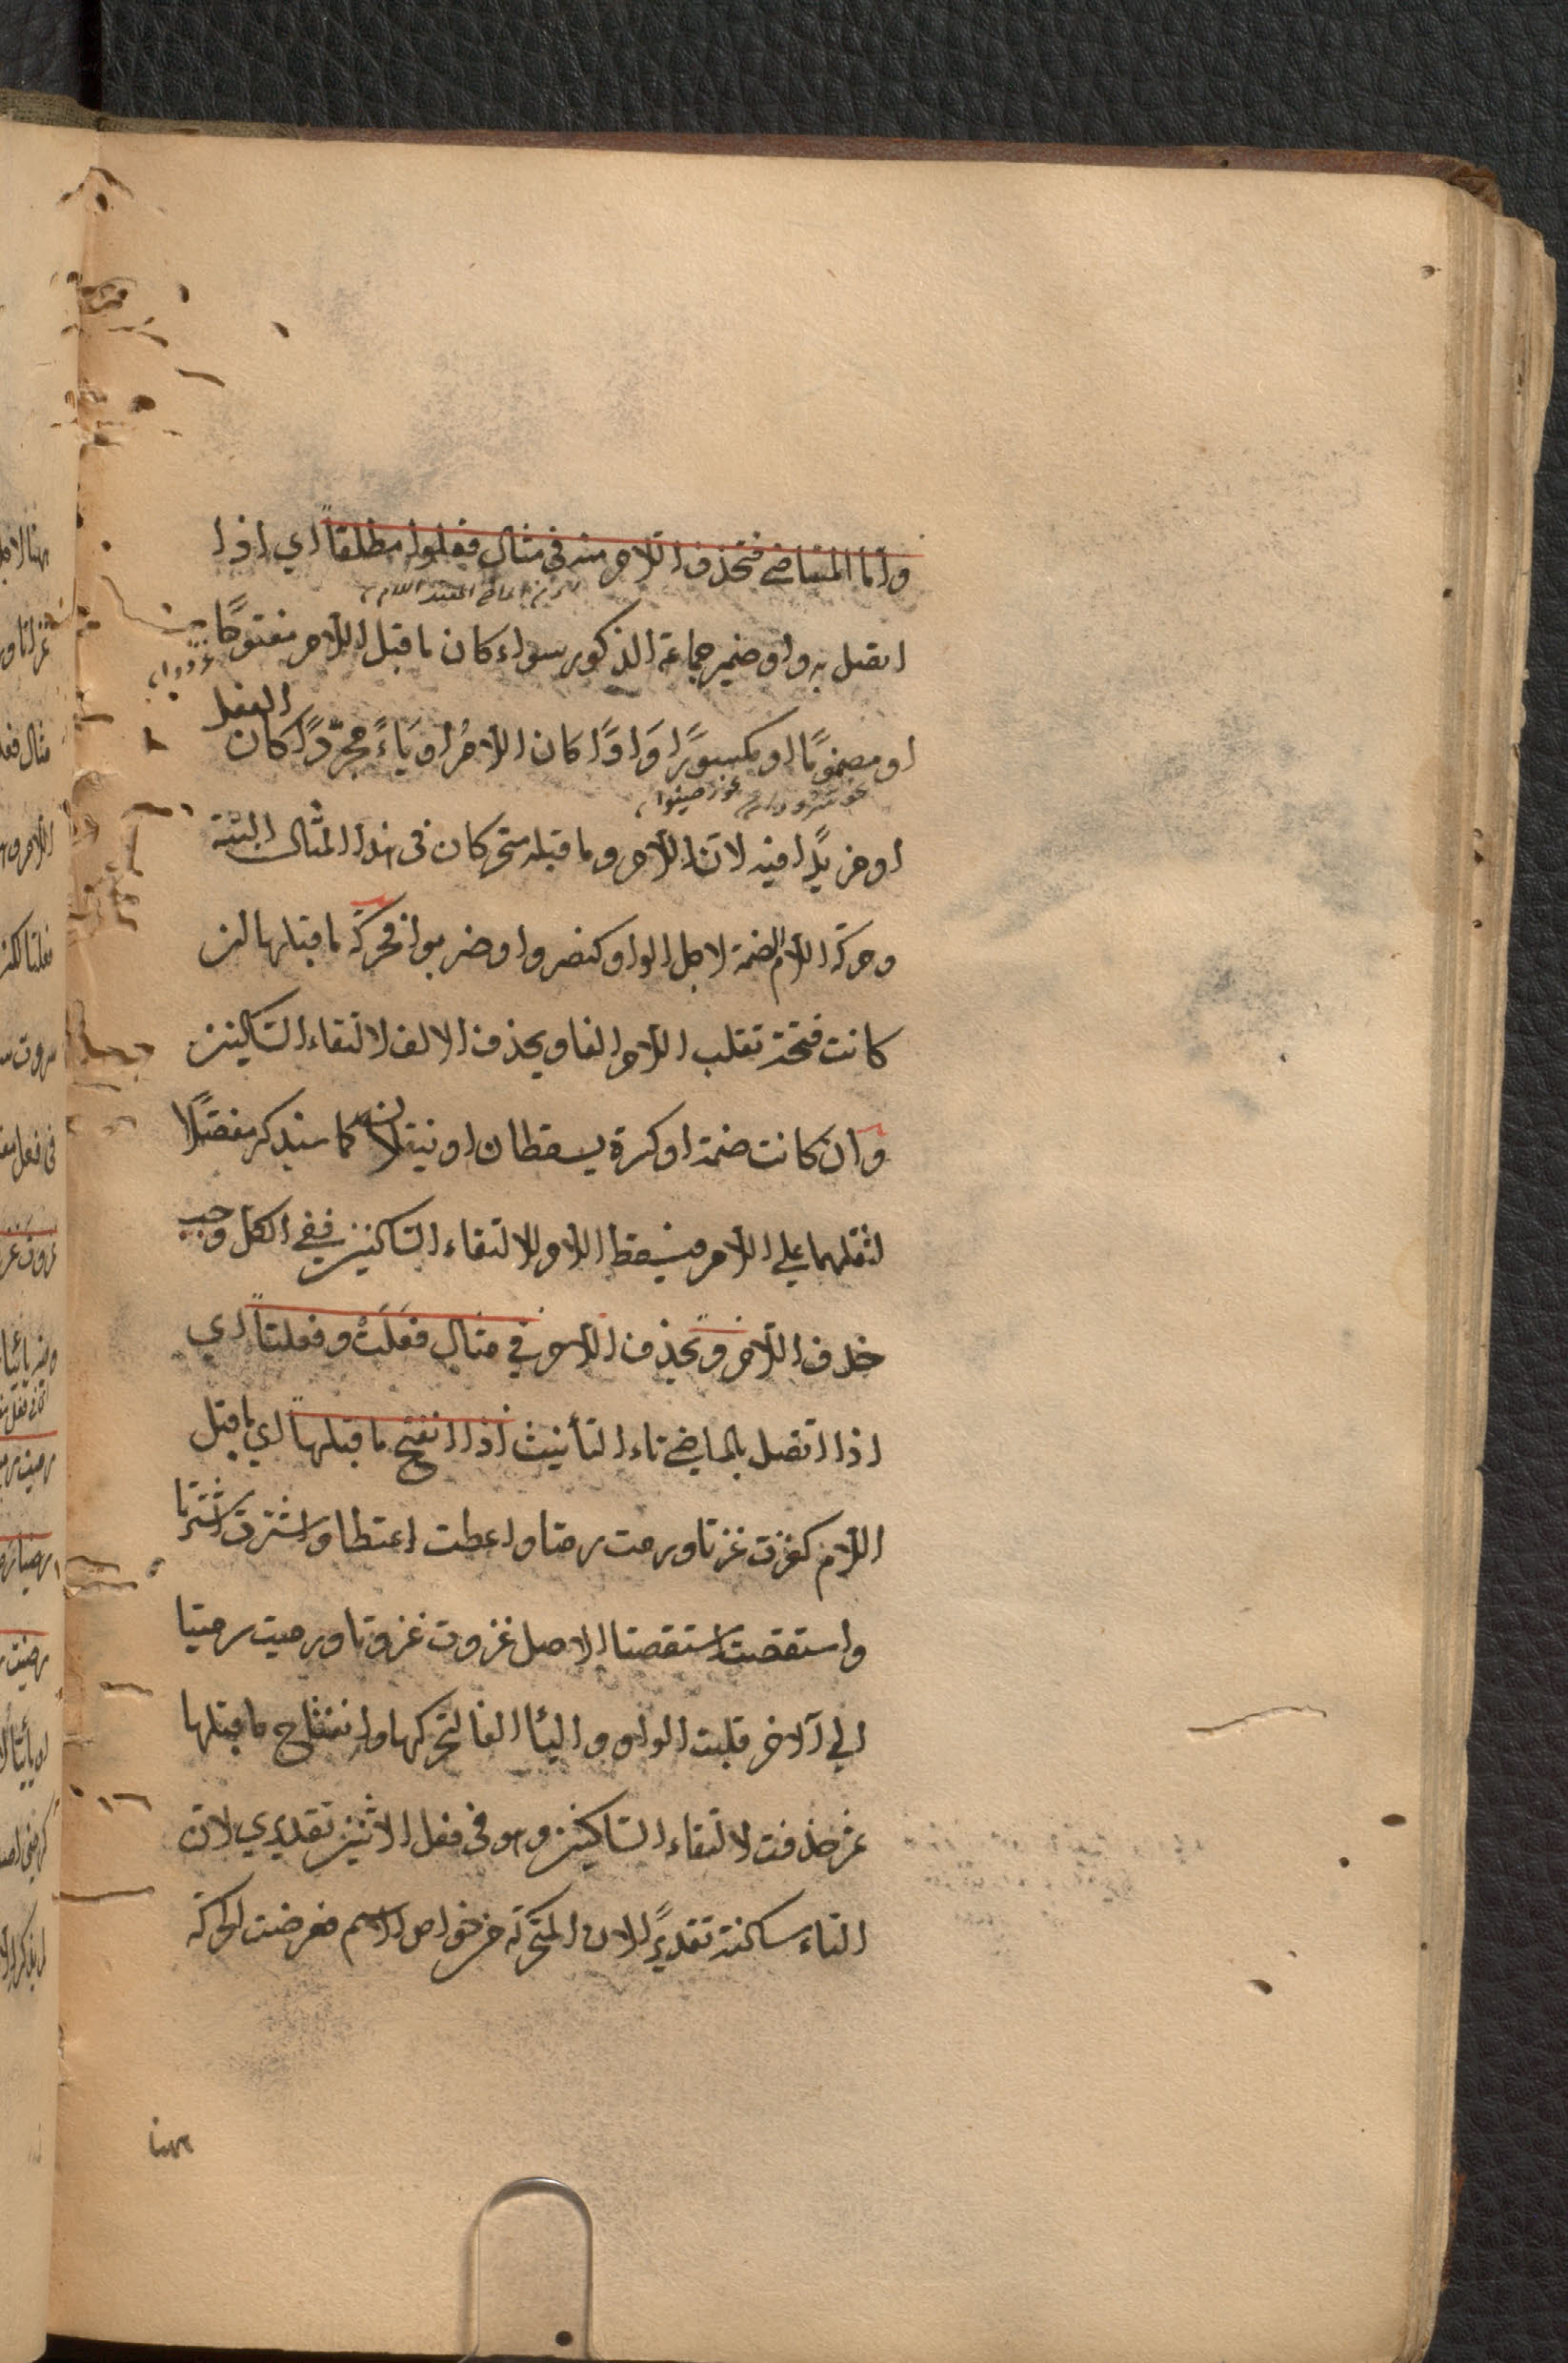 واما الماضي فتحذف اللام منه في مثال فعلوا مطلقاً اي اذا
اتصل به واو ضمير جماعة الذكور سواء كان ما قبل اللام مفتوحًا
غزوا
او مضمومًا او مكسورًا وَاوًا كان اللامُ او يَاءً مجرّدًا كان الفعل
نحو سرووا نحو رضيوا
او مزيدًا فيه لان اللام وما قبله متحركان في هذا المثال البتة
وحركة اللام الضمة لاجل الواو كنصروا وضربوا فحركة ما قبلها ان
كانت فتحة تقلب اللام الفا ويحذف الالف لالتقاء الساكنين
وان كانت ضمة او كسرة يسقطان او ينقلان كما سنذكر مفصّلًا
لثقلهما على اللام فيسقط اللام لالتقاء الساكنين ففي الكل وجب
حذف اللام وتحذف اللام في مثال فعَلَتْ وفعلتا اي
اذا اتصل بالماضي تاء التأنيث اذا انفتح ما قبلها اي ما قبل
اللام كغزت غزتا ورمت رمتا واعطت اعتطا واشترت اشترتا
واستقصت استقصتا الاصل غزوت غزوتا ورميت رميتا
الي آلاخر قلبت الواو والياا الفا لتحركها وانفتاح ما قبلها
ثم حذفت لالتقاء الساكنين وهو في فعل الاثنين تقديري لان
التاء ساكنة تقديرًا لان المتحركة من خواص الاسم فعرضت الحركة
ههنا